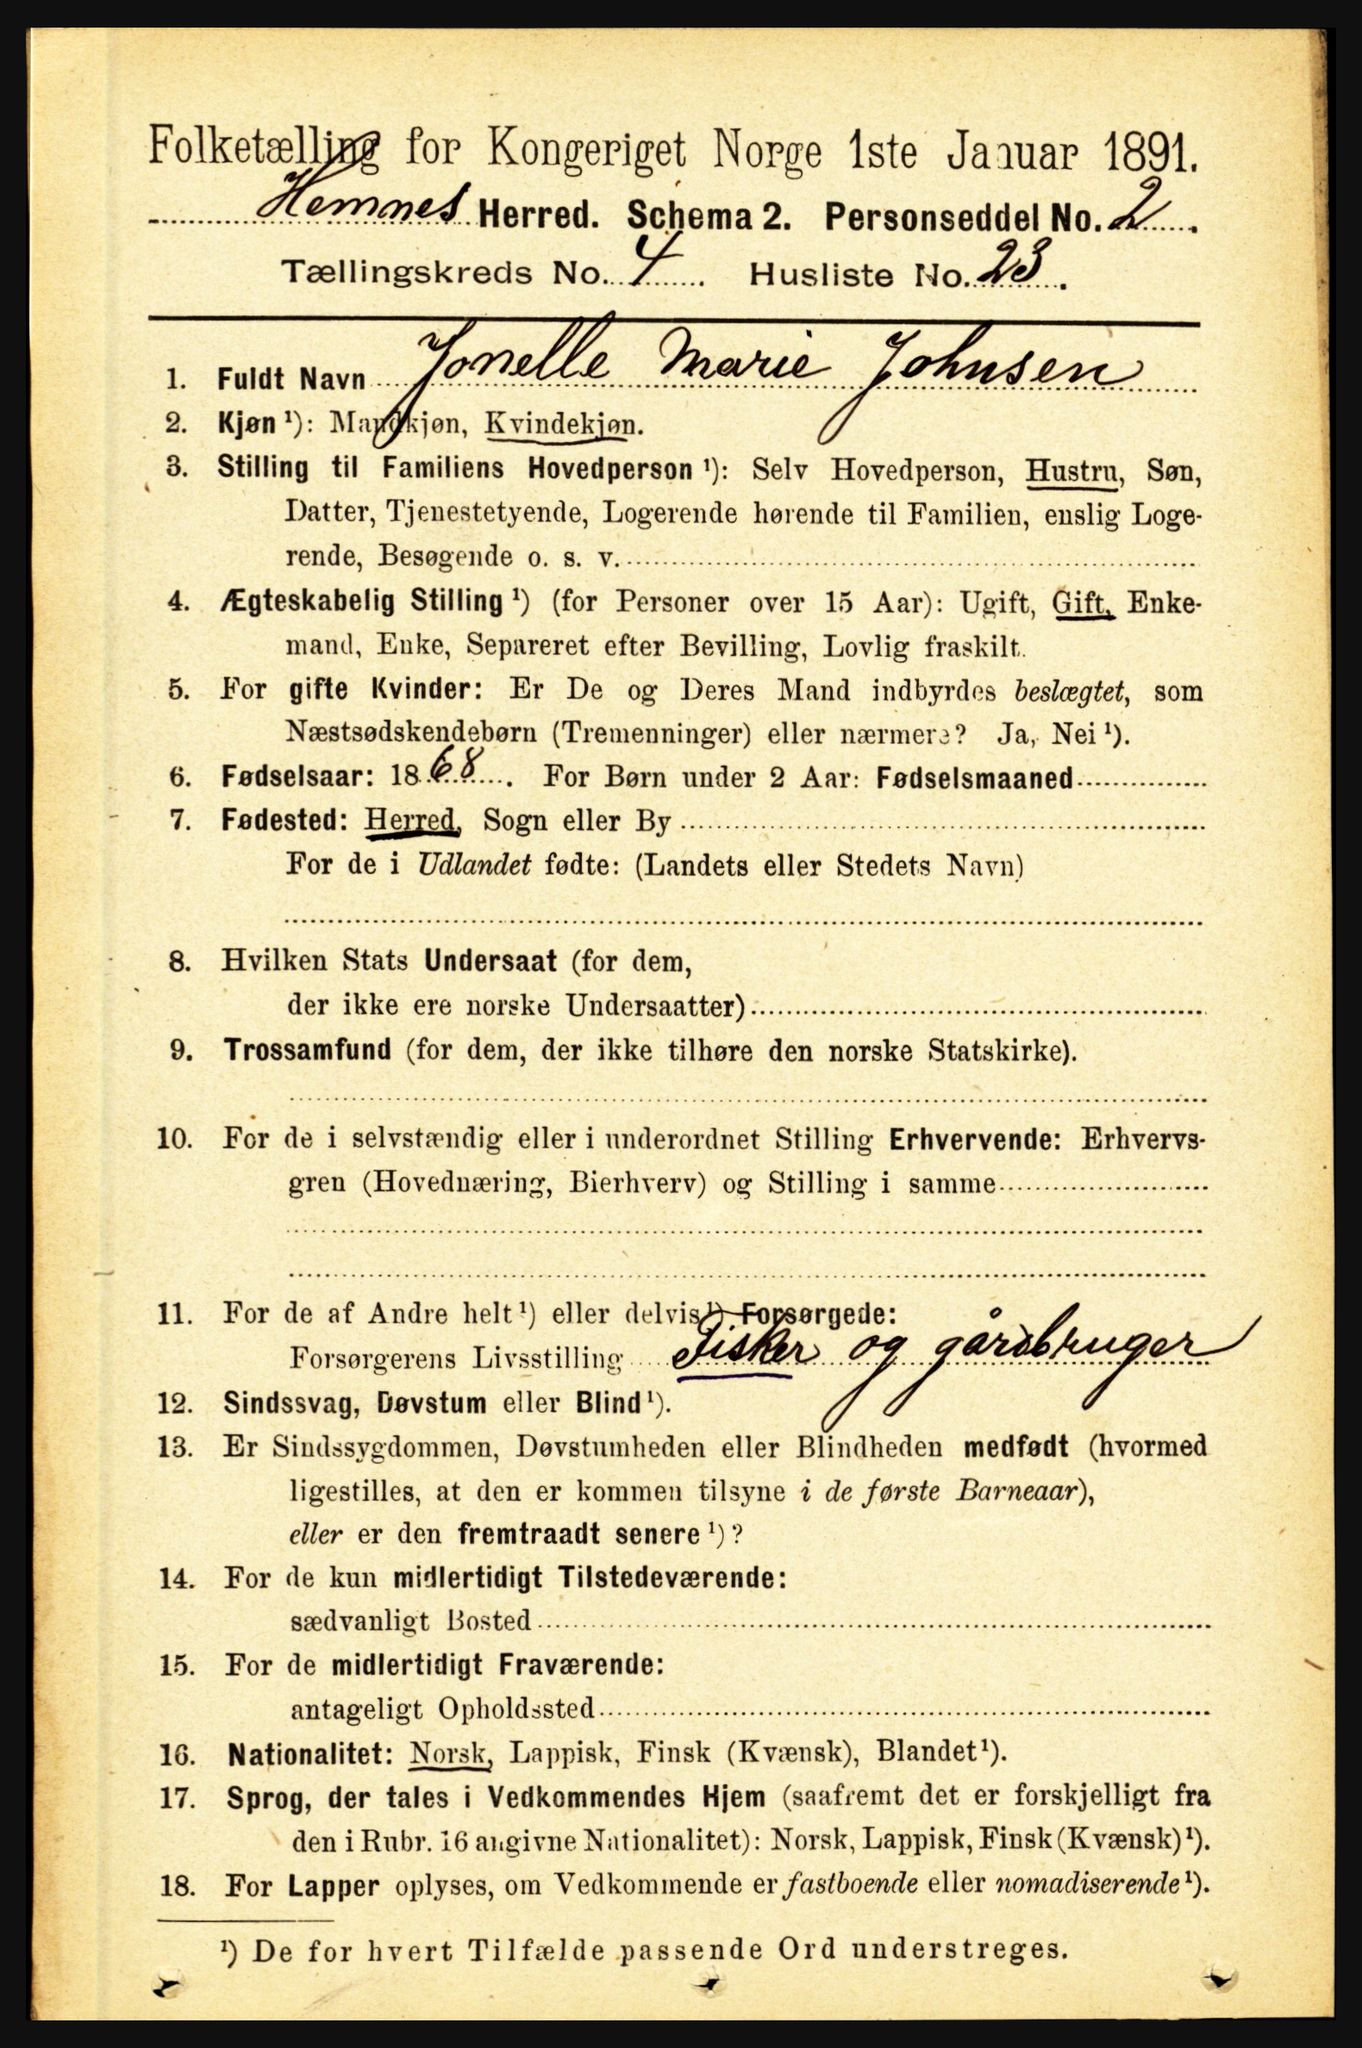 Folketælling for Kongeriget Norge 1ste Januar 1891.
Hemnes Herred. Schema 2. Personseddel No. 2.
Tællingskreds No. 4. Husliste No. 23.
1. Fuldt Navn Jonelle Marie Johnsen
2. Kjøn ¹): Mandkjøn, Kvindekjøn.
3. Stilling til Familiens Hovedperson ¹): Selv Hovedperson, Hustru, Søn,
Datter, Tjenestetyende, Logerende hørende til Familien, enslig Loge-
rende, Besøgende o. s. v.
4. Ægteskabelig Stilling ¹) (for Personer over 15 Aar): Ugift, Gift, Enke-
mand, Enke, Separeret efter Bevilling, Lovlig fraskilt.
5. For gifte Kvinder: Er De og Deres Mand indbyrdes beslægtet, som
Næstsødskendebørn (Tremenninger) eller nærmere? Ja, Nei ¹).
6. Fødselsaar: 1868. For Børn under 2 Aar: Fødselsmaaned
7. Fødested: Herred, Sogn eller By
For de i Udlandet fødte: (Landets eller Stedets Navn)
8. Hvilken Stats Undersaat (for dem,
der ikke ere norske Undersaatter)
9. Trossamfund (for dem, der ikke tilhøre den norske Statskirke).
10. For de i selvstændig eller i underordnet Stilling Erhvervende: Erhvervs-
gren (Hovednæring, Bierhverv) og Stilling i samme
11. For de af Andre helt ¹) eller delvis ¹) Forsørgede:
Forsørgerens Livsstilling Fisker og gårdbruger
12. Sindssvag, Døvstum eller Blind ¹).
13. Er Sindssygdommen, Døvstumheden eller Blindheden medfødt (hvormed
ligestilles, at den er kommen tilsyne i de første Barneaar),
eller er den fremtraadt senere ¹)?
14. For de kun midlertidigt Tilstedeværende:
sædvanligt Bosted
15. For de midlertidigt Fraværende:
antageligt Opholdssted
16. Nationalitet: Norsk, Lappisk, Finsk (Kvænsk), Blandet ¹).
17. Sprog, der tales i Vedkommendes Hjem (saafremt det er forskjelligt fra
den i Rubr. 16 angivne Nationalitet): Norsk, Lappisk, Finsk (Kvænsk) ¹).
18. For Lapper oplyses, om Vedkommende er fastboende eller nomadiserende ¹).
¹) De for hvert Tilfælde passende Ord understreges.